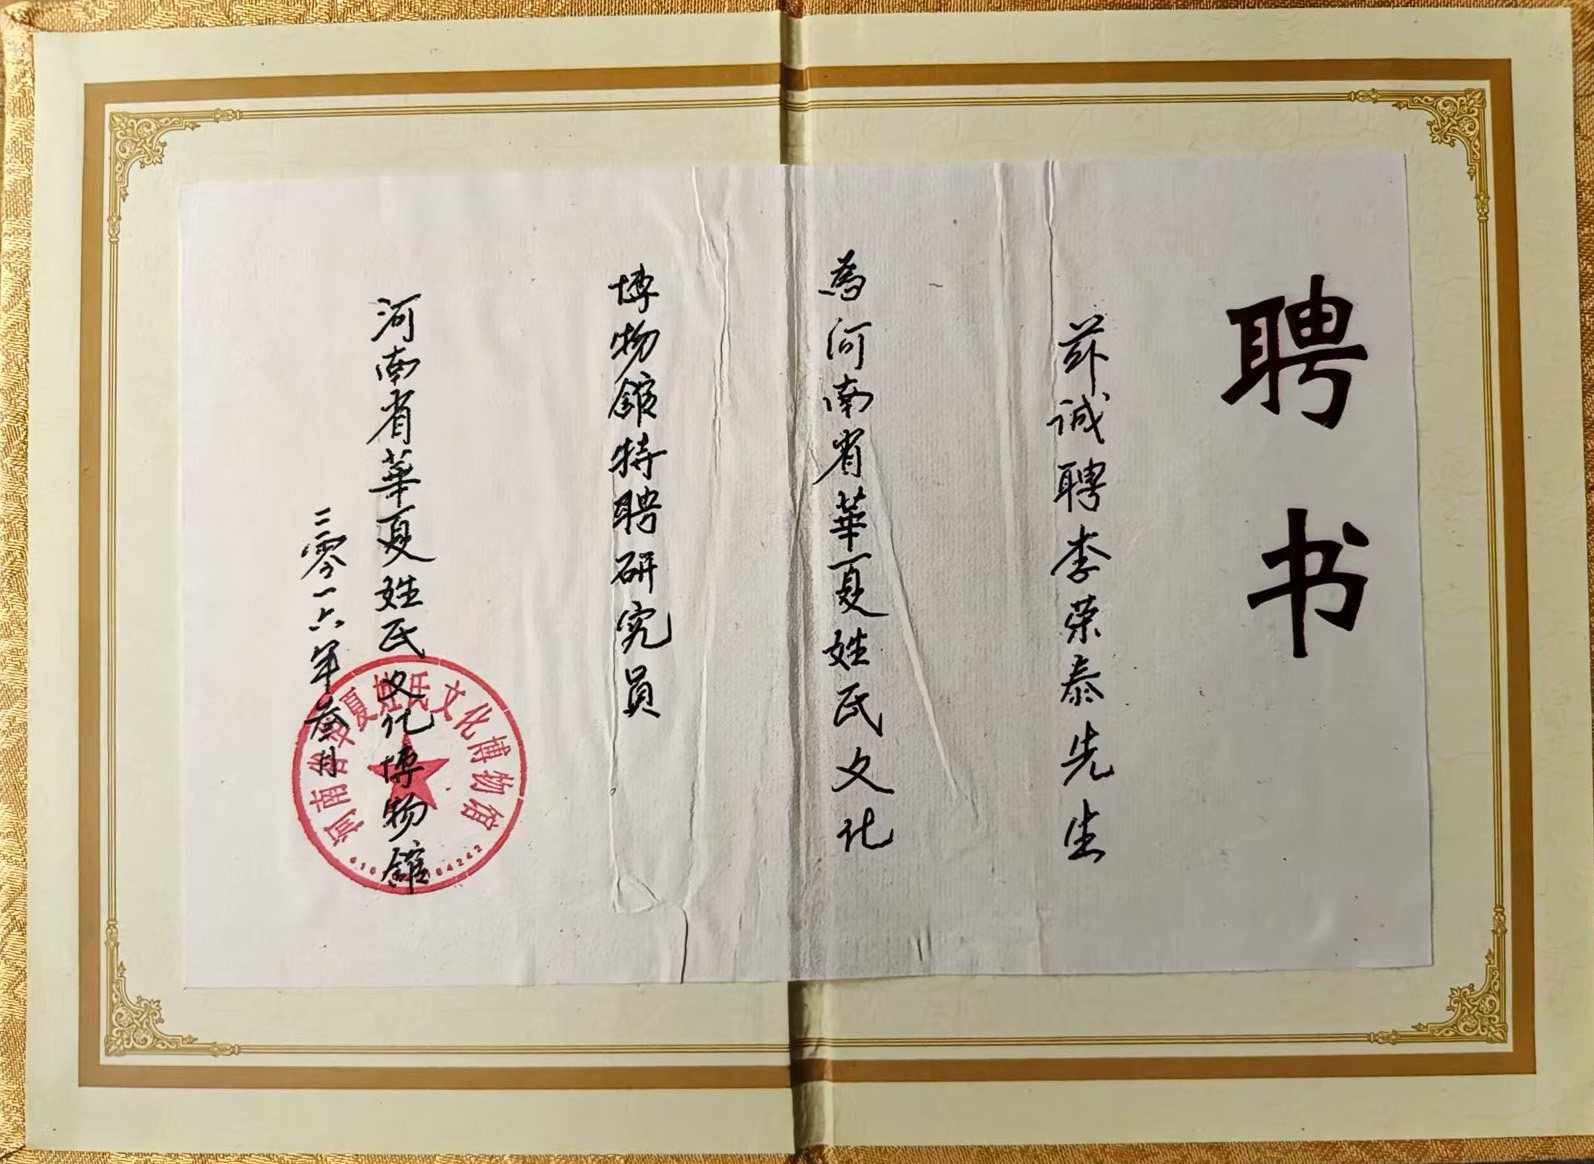 聘书
兹诚聘李荣泰先生
為河南省華夏姓氏文化
博物館特聘研究員
河南省華夏姓氏文化博物館
二零一六年叁月
河南省华夏姓氏文化博物馆